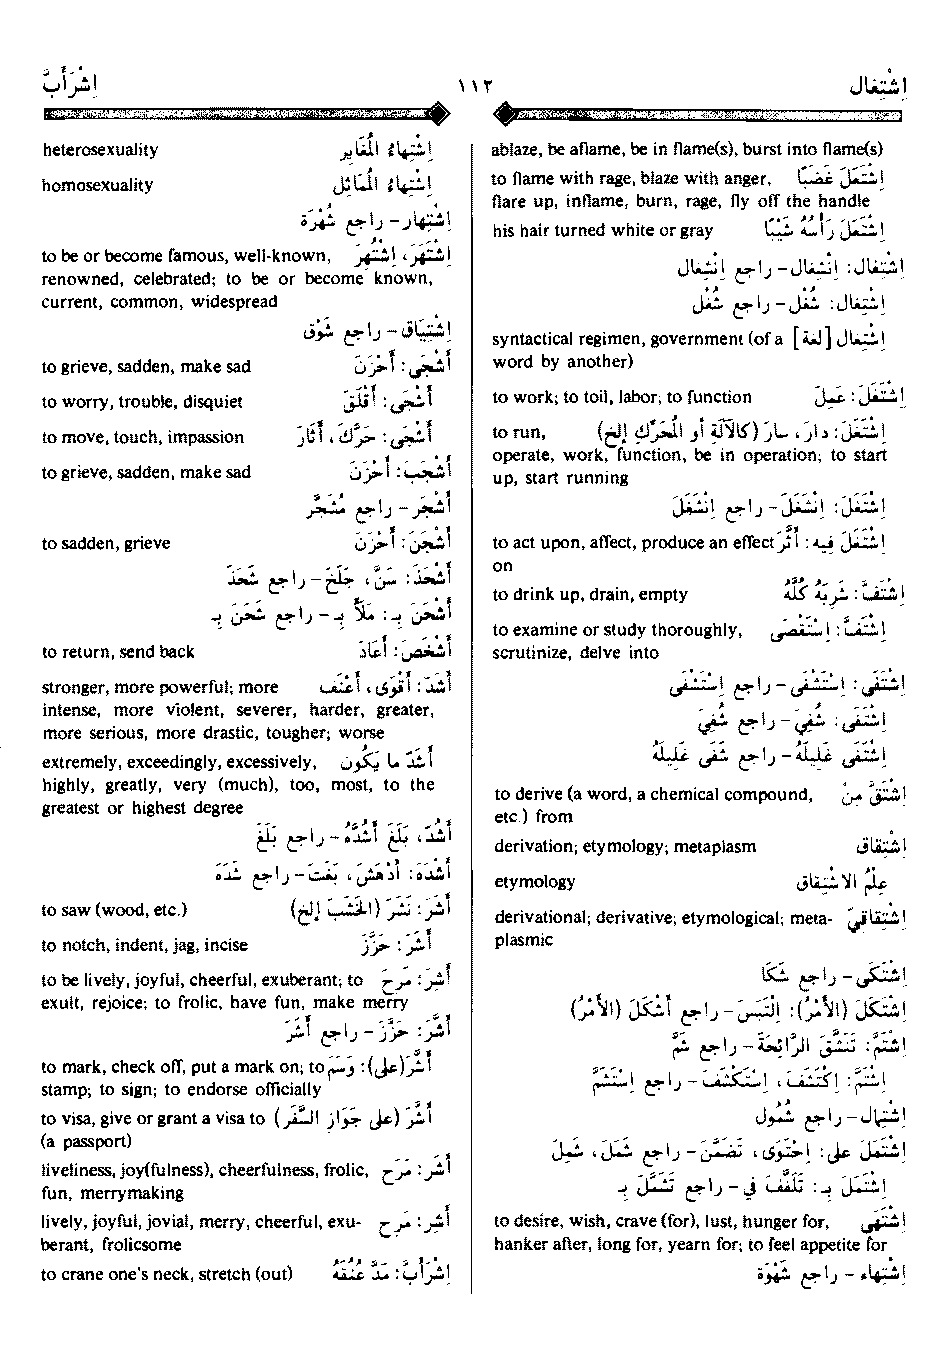 اِشْتِغال ١١٢ اِشْرَأَبَّ
ablaze, be aflame, be in flame(s), burst into flame(s)
to flame with rage, blaze with anger, اِشْتَعَلَ غَضَبًا
flare up, inflame, burn, rage, fly off the handle
his hair turned white or gray اِشْتَعَلَ رَأْسُهُ شَيْبًا
اِشْتِغال: اِنْشِغال - راجع اِنْشِغال
اِشْتِغال: شُغْل - راجع شُغْل
syntactical regimen, government (of a اِشْتِغال [لغة]
word by another)
to work; to toil, labor; to function اِشْتَغَلَ: عَمِلَ
to run, اِشْتَغَلَ: دارَ، سارَ (كالآلَةِ أو المُحَرِّكِ إلخ)
operate, work, function, be in operation; to start
up, start running
اِشْتَغَلَ: اِنْشَغَلَ - راجع اِنْشَغَلَ
to act upon, affect, produce an effect اِشْتَغَلَ فيه: أَثَّرَ
on
to drink up, drain, empty اِشْتَفَّ: شَرِبَهُ كُلَّهُ
to examine or study thoroughly, اِشْتَفَّ: اِسْتَقْصَى
scrutinize, delve into
اِشْتَفَى: اِسْتَشْفَى - راجع اِسْتَشْفَى
اِشْتَفَى: شُفِيَ - راجع شُفِيَ
اِشْتَفَى غَلِيلَهُ - راجع شَفَى غَلِيلَهُ
to derive (a word, a chemical compound, اِشْتَقَّ مِنْ
etc.) from
derivation; etymology; metaplasm اِشْتِقاق
etymology عِلْمُ الاشْتِقاق
derivational; derivative; etymological; meta- اِشْتِقاقيّ
plasmic
اِشْتَكَى - راجع شَكا
اِشْتَكَلَ (الأَمْرُ): اِلْتَبَسَ - راجع أَشْكَلَ (الأَمْرُ)
اِشْتَمَّ: تَنَشَّقَ الرَّائِحَةَ - راجع شَمَّ
اِشْتَمَّ: اِكْتَشَفَ، اِسْتَكْشَفَ - راجع اِسْتَشَمَّ
اِشْتِمال - راجع شُمُول
اِشْتَمَلَ على: اِحْتَوَى، تَضَمَّنَ - راجع شَمَلَ، شَمِلَ
اِشْتَمَلَ بـ: تَلَفَّفَ في - راجع تَشَمَّلَ بـ
to desire, wish, crave (for), lust, hunger for, اِشْتَهَى
hanker after, long for, yearn for; to feel appetite for
اِشْتِهاء - راجع شَهْوَة
heterosexuality اِشْتِهاءُ المُغَايِر
homosexuality اِشْتِهاءُ المُمَاثِل
اِشْتِهار - راجع شُهْرَة
to be or become famous, well-known, اِشْتَهَرَ، اُشْتُهِرَ
renowned, celebrated; to be or become known,
current, common, widespread
اِشْتِيَاق - راجع شَوْق
to grieve, sadden, make sad أَشْجَى: أَحْزَنَ
to worry, trouble, disquiet أَشْجَى: أَقْلَقَ
to move, touch, impassion أَشْجَى: حَرَّكَ، أَثَارَ
to grieve, sadden, make sad أَشْجَبَ: أَحْزَنَ
أَشْجَر - راجع مُشَجَّر
to sadden, grieve أَشْجَنَ: أَحْزَنَ
أَشْحَذَ: سَنَّ، جَلَخَ - راجع شَحَذَ
أَشْحَنَ بـ: مَلأَ بـ - راجع شَحَنَ بـ
to return, send back أَشْخَصَ: أَعَادَ
stronger, more powerful; more أَشَدّ: أَقْوَى، أَعْنَف
intense, more violent, severer, harder, greater,
more serious, more drastic, tougher; worse
extremely, exceedingly, excessively, أَشَدّ ما يَكُون
highly, greatly, very (much), too, most, to the
greatest or highest degree
أَشُدّ، بَلَغَ أَشُدَّهُ - راجع بَلَغَ
أَشْدَهَ: أَدْهَشَ، بَغَتَ - راجع شَدَهَ
to saw (wood, etc.) أَشَرَ: نَشَرَ (الخَشَبَ إلخ)
to notch, indent, jag, incise أَشَرَ: حَزَّزَ
to be lively, joyful, cheerful, exuberant; to أَشِرَ: مَرِحَ
exult, rejoice; to frolic, have fun, make merry
أَشَّرَ: حَزَّزَ - راجع أَشَرَ
to mark, check off, put a mark on; to أَشَّرَ (على): وَسَمَ
stamp; to sign; to endorse officially
to visa, give or grant a visa to أَشَّرَ (على جَوَازِ السَّفَر)
(a passport)
liveliness, joy(fulness), cheerfulness, frolic, أَشَر: مَرَح
fun, merrymaking
lively, joyful, jovial, merry, cheerful, exu- أَشِر: مَرِح
berant, frolicsome
to crane one's neck, stretch (out) اِشْرَأَبَّ: مَدَّ عُنُقَهُ